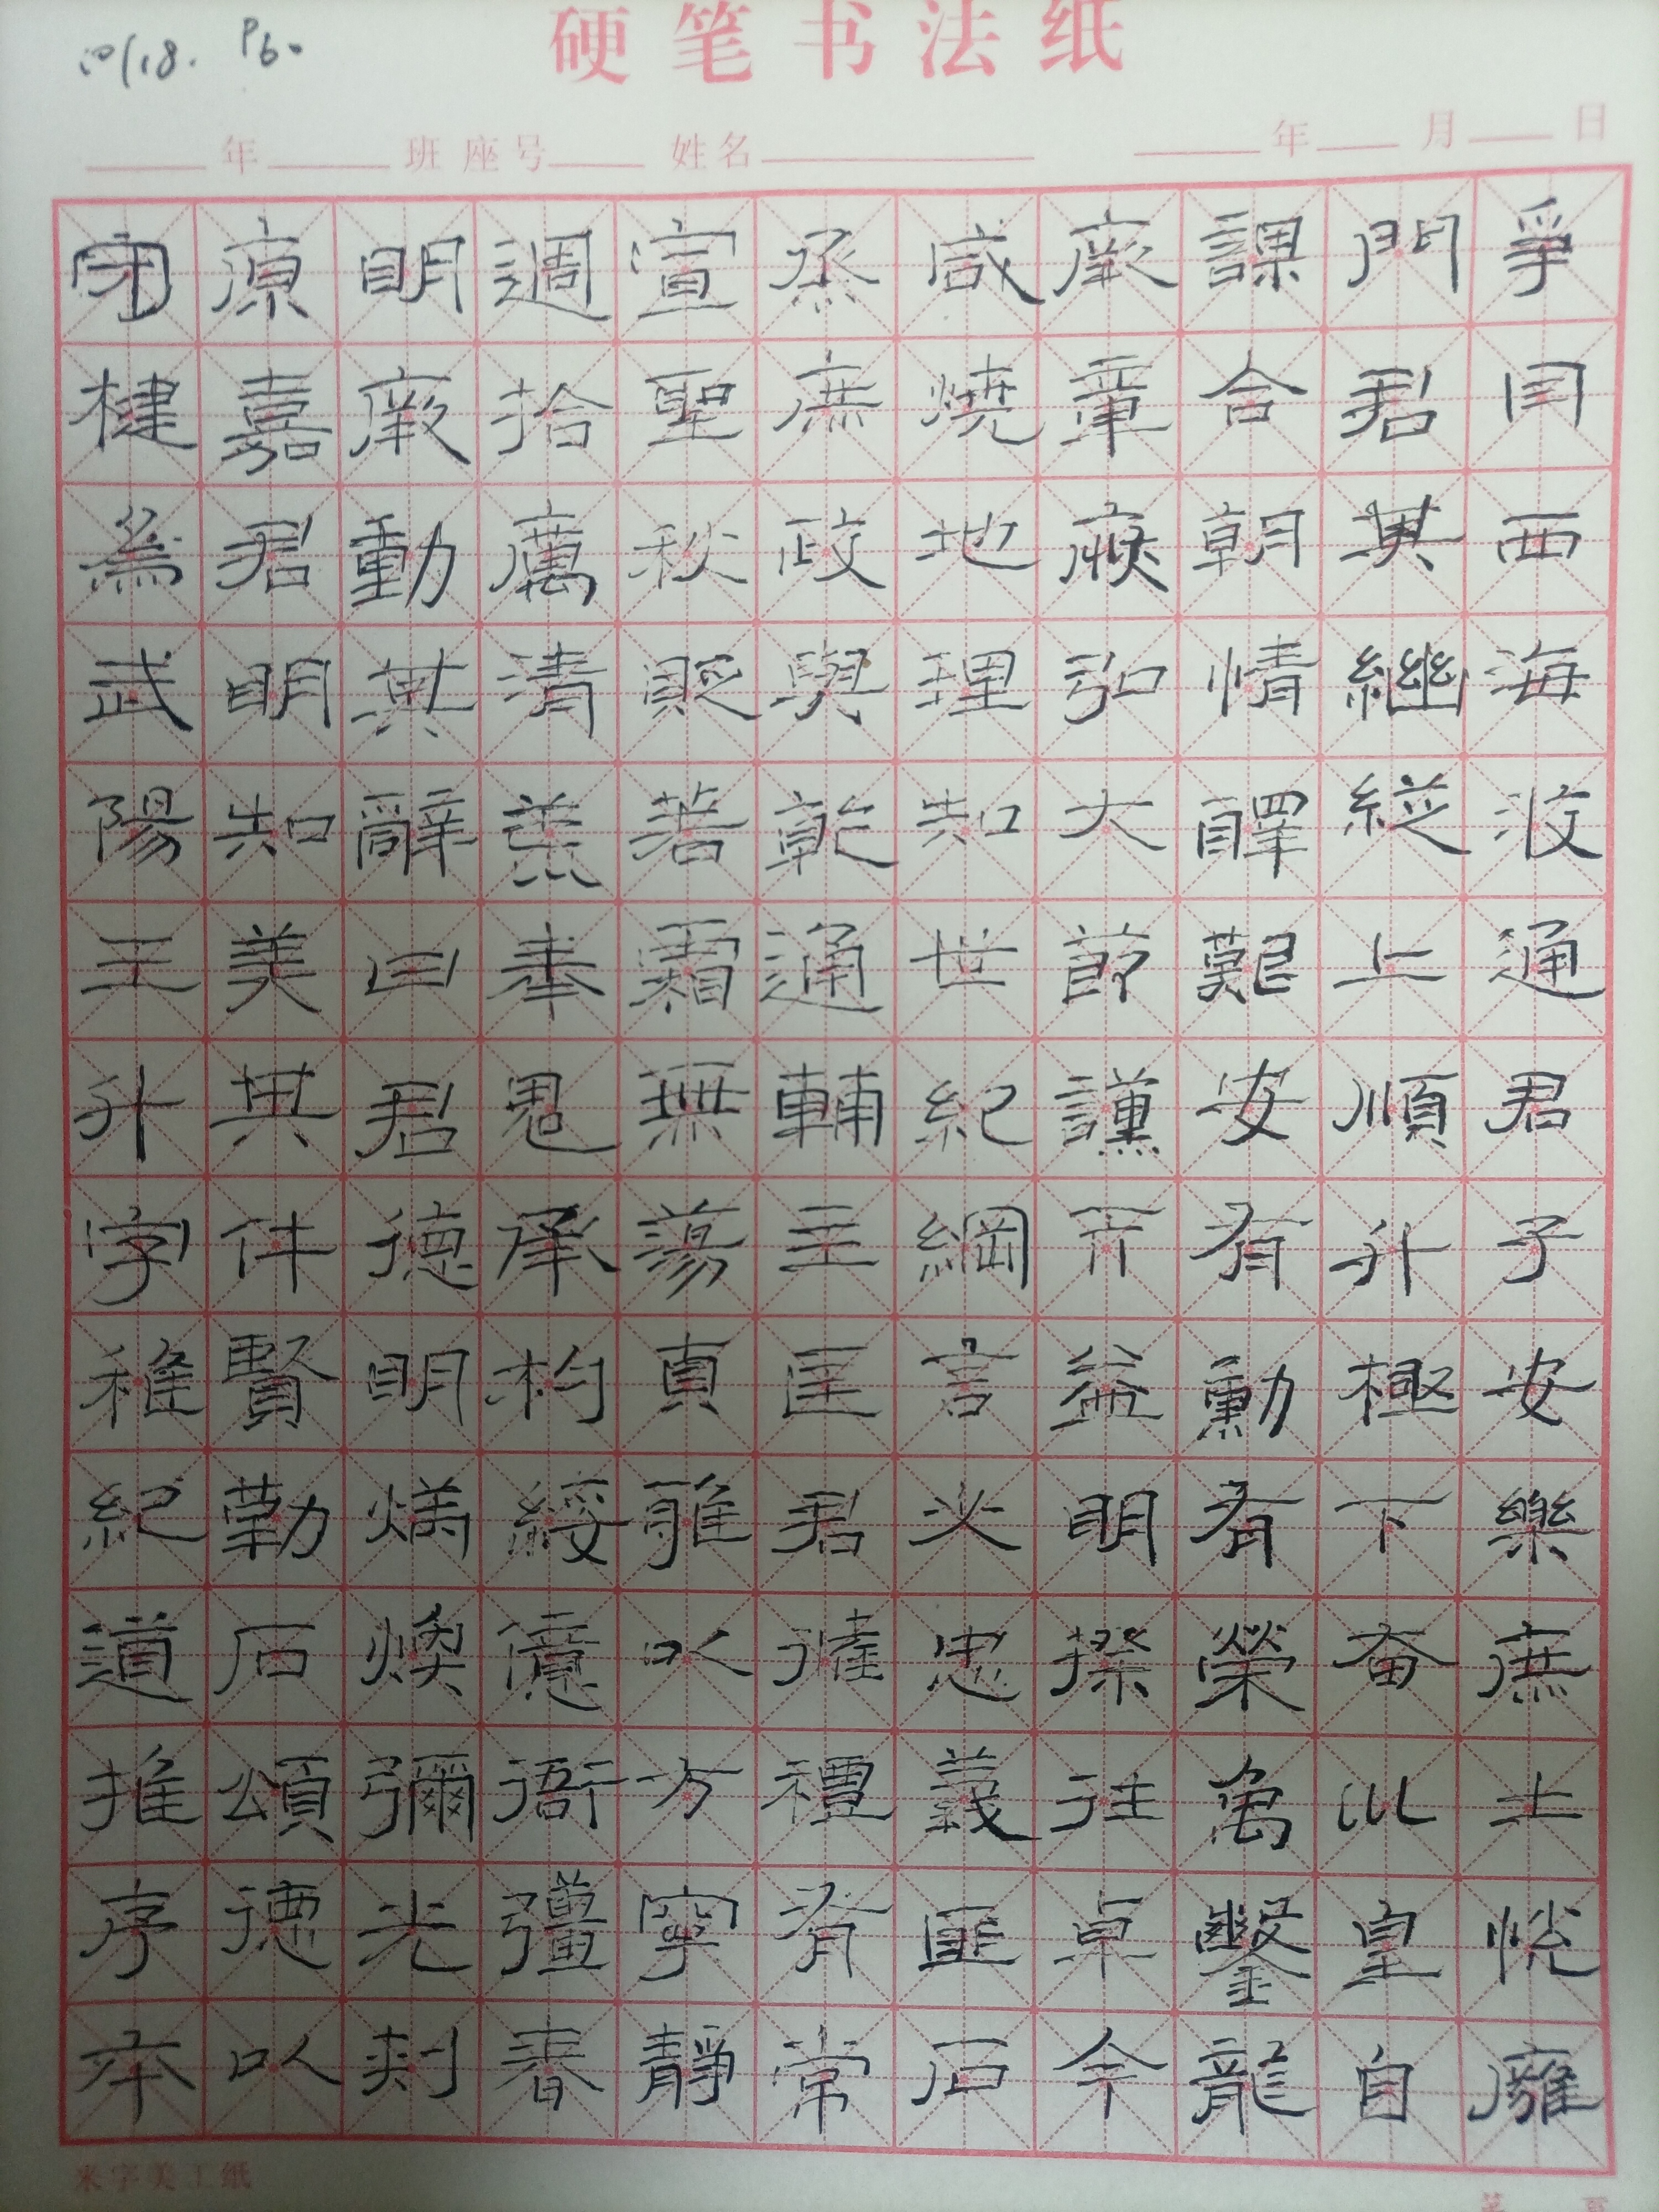 10/18. P6.
硬笔书法纸
年 班 座号 姓名 年 月 日
爭同西海波通君子安樂庶士悅廱
門君其繼縱上順升極下畣巛皇自
課合朝情醳艱安有勳有榮萬鑿龍
厥章弘大節讜益明揆往卓今
咸燒地理知世紀綱言必忠義匪石
烝庶政與乾通輔主匡君禮有常
宣聖秋貶若霜無蕩真雅以方寧靜
週拾厲清羔奉魁承杓綏億衙彊春
明厥動其辭曰君德明煥彌光刺
原嘉君明知美其仵賢勤石頌德以
守楗為武陽王升字稚紀道推序本
米字美工纸